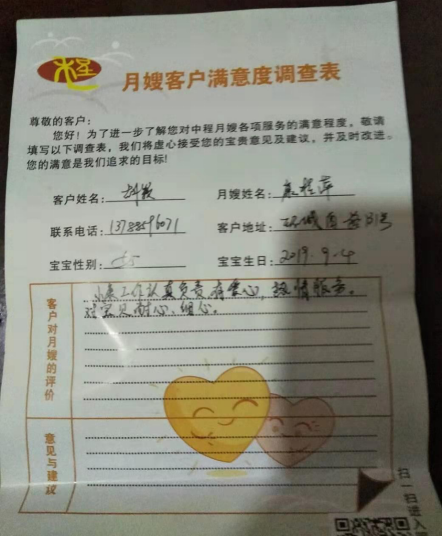 月嫂客户满意度调查表
尊敬的客户：
您好！为了进一步了解您对中程月嫂各项服务的满意程度，敬请
填写以下调查表，我们将虚心接受您的宝贵意见及建议，并及时改进。
您的满意是我们追求的目标!
客户姓名：
月嫂姓名：
联系电话：
客户地址：
宝宝性别：
宝宝生日：2019.9.4
客户对月嫂的评价
工作认真负责有爱心，热情服务。
对宝贝耐心、细心。
意见与建议
扫一扫进入